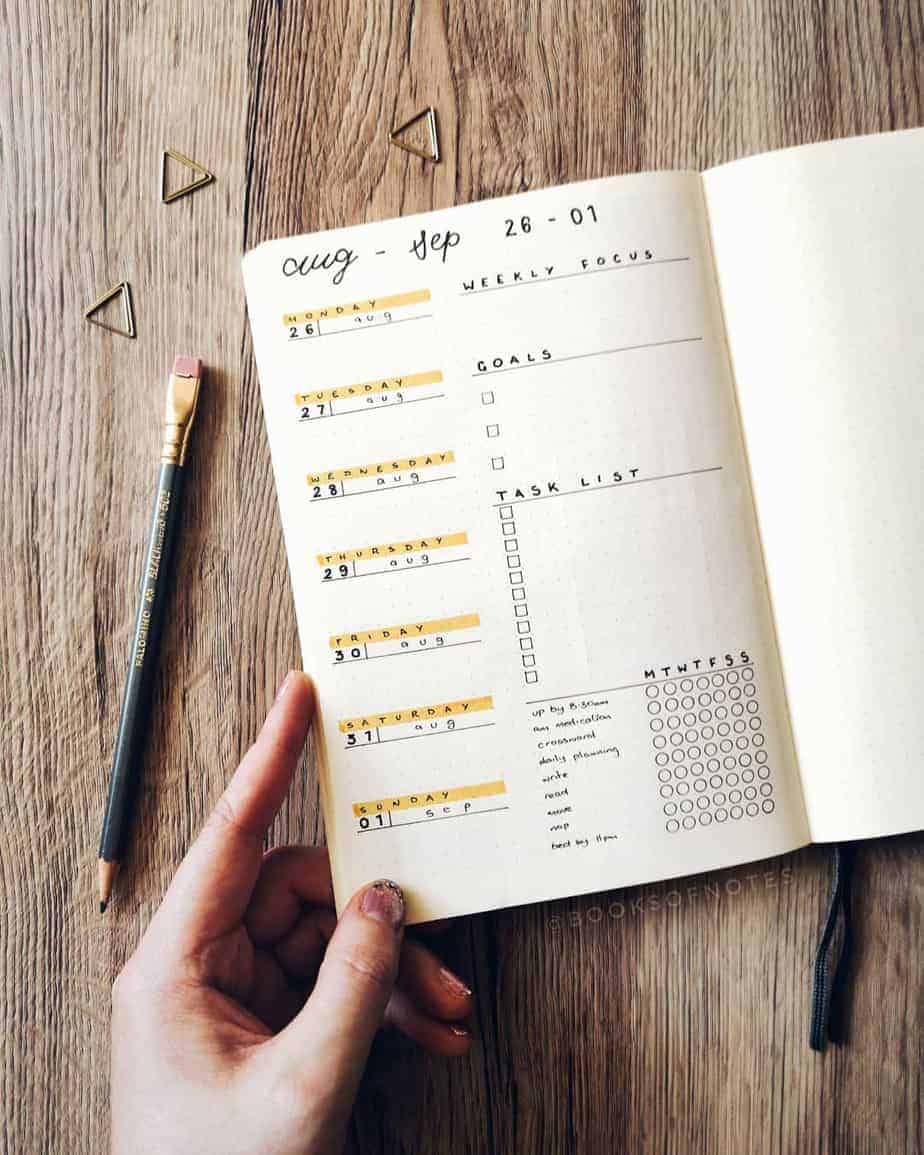 aug - sep 26 - 01
MONDAY
26 aug
TUESDAY
27 aug
WEDNESDAY
28 aug
THURSDAY
29 aug
FRIDAY
30 aug
SATURDAY
31 aug
SUNDAY
01 sep
WEEKLY FOCUS
GOALS
TASK LIST
M T W T F S S
up by 8:30am
am medication
crossword
daily planning
write
read
move
nap
bed by 11pm
PALOMINO BLACKWING 602
@BOOKSOFNOTES